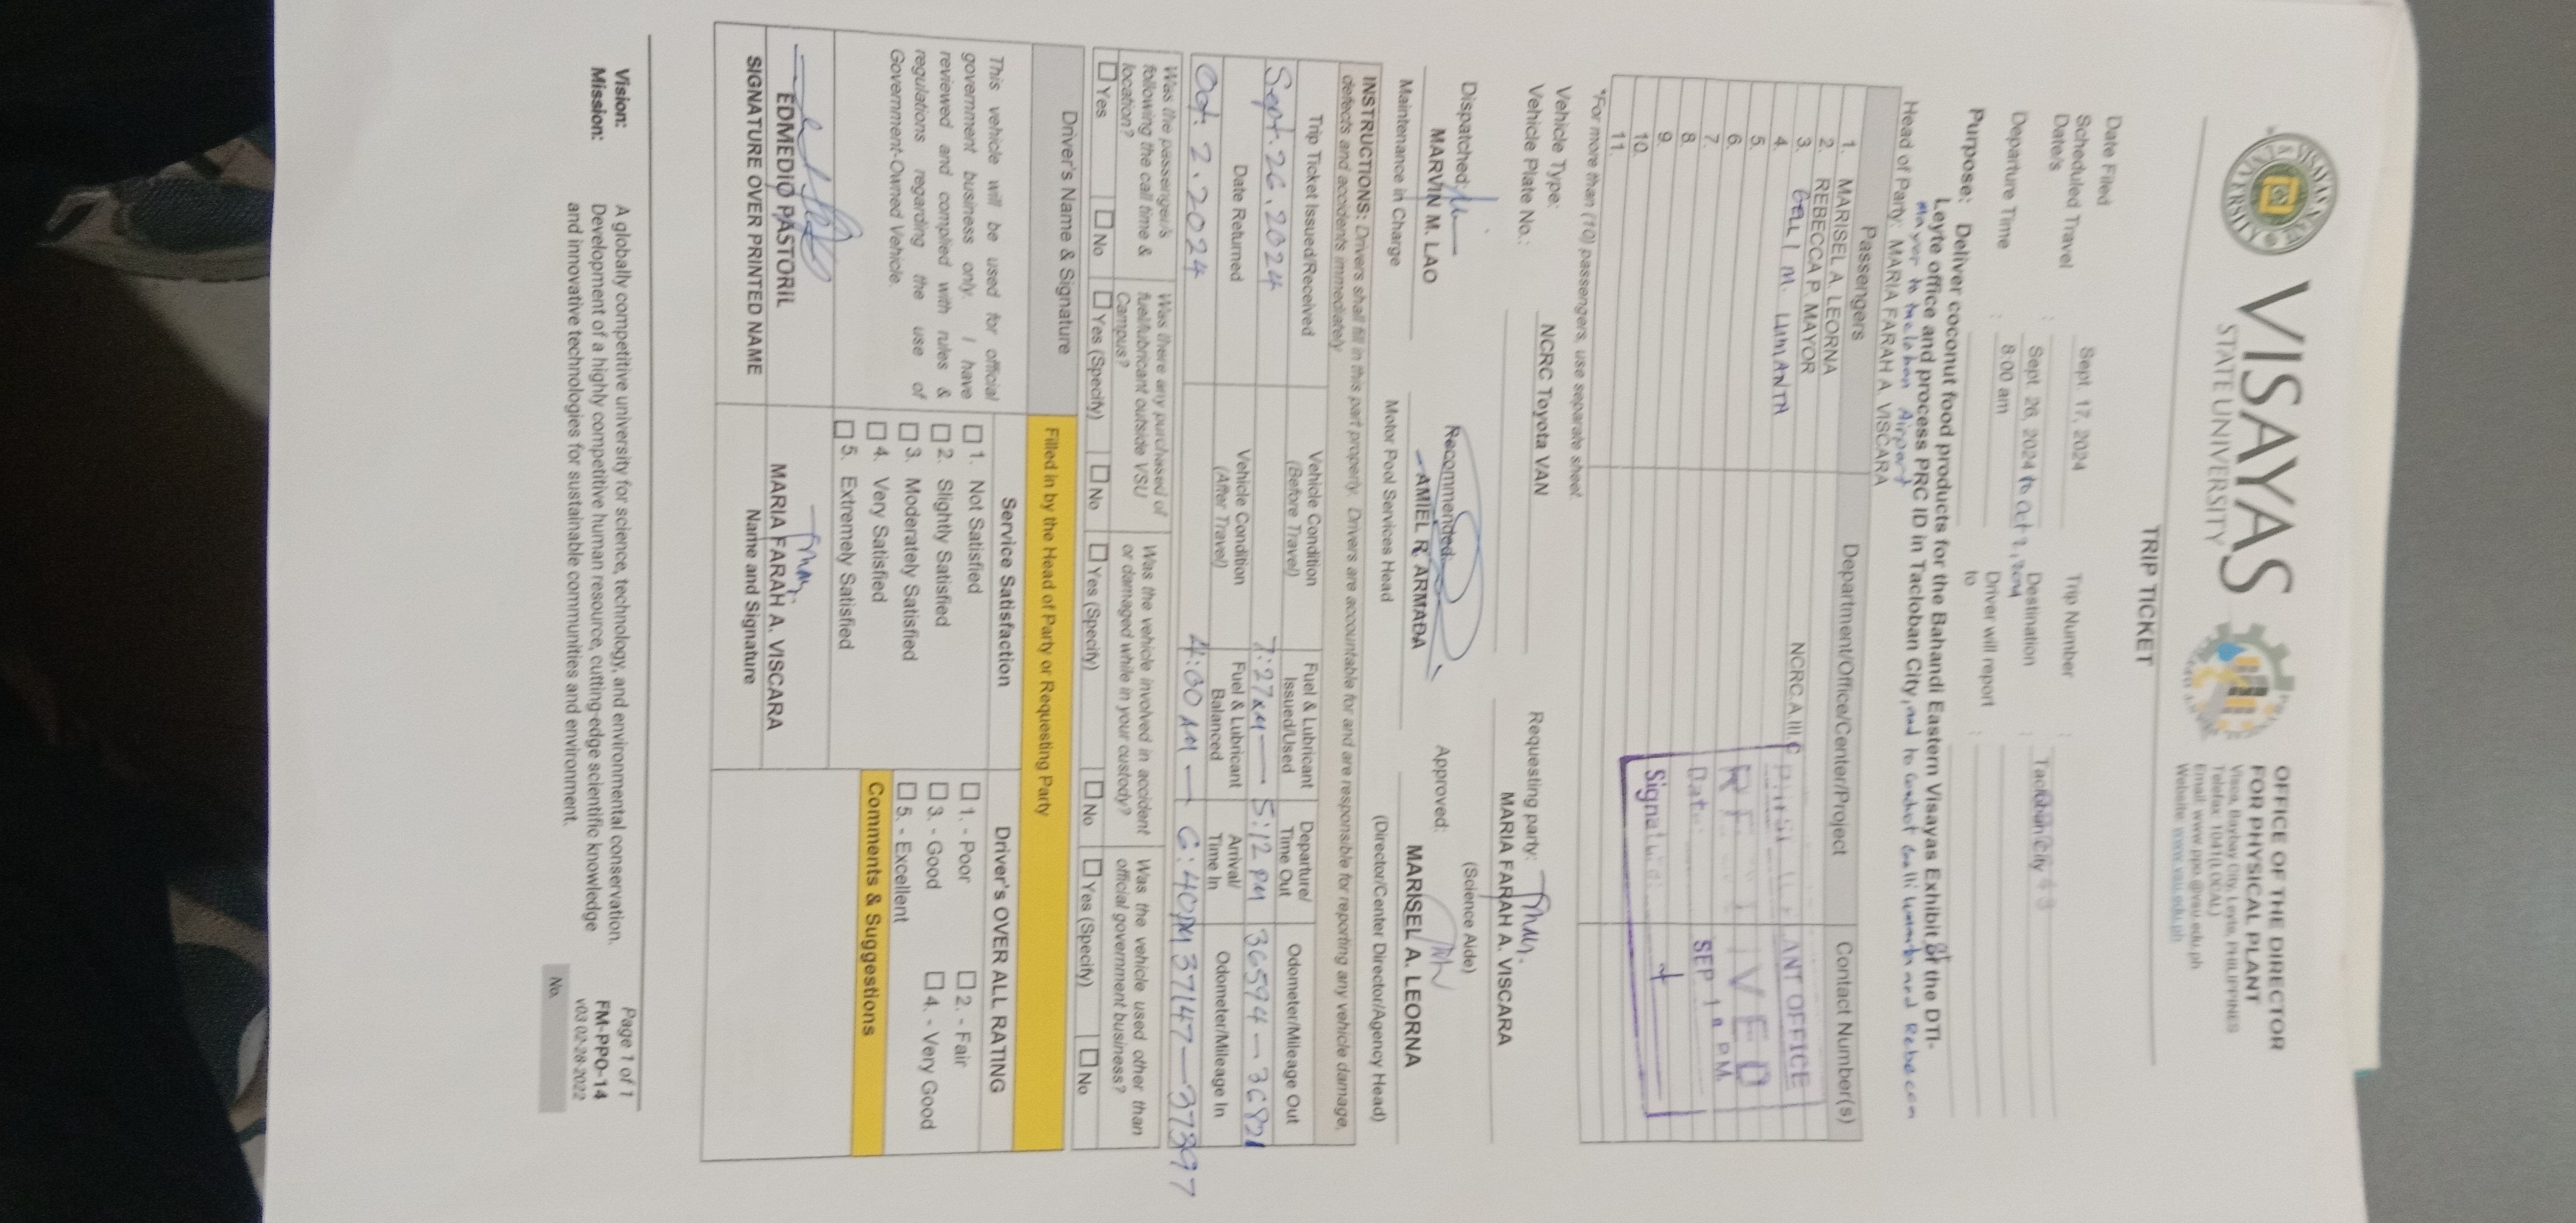 VISAYAS
STATE UNIVERSITY
OFFICE OF THE DIRECTOR
FOR PHYSICAL PLANT
Visca, Baybay City, Leyte, PHILIPPINES
Telefax: 1041(LOCAL)
Email: www.ppo.@vsu.edu.ph
Website: www.vsu.edu.ph
TRIP TICKET
Date Filed : Sept. 17, 2024 Trip Number :
Scheduled Travel Date/s : Sept 26, 2024 to Oct 2, 2024 Destination : Tacloban City
Departure Time : 8:00 am Driver will report to :
Purpose: Deliver coconut food products for the Bahandi Eastern Visayas Exhibit of the DTI-
Leyte office and process PRC ID in Tacloban City, and to conduct Galli Lumanta and Rebecca
Mayor to Tacloban Airport
Head of Party: MARIA FARAH A. VISCARA
Passengers Department/Office/Center/Project Contact Number(s)
1. MARISEL A. LEORNA
2. REBECCA P. MAYOR NCRC.A.III.C
3. GALLI M. LUMANTA
4.
5.
6.
7.
8.
9.
10.
11.
PHYSICAL PLANT OFFICE
RECEIVED
Date: SEP 18 P.M.
Signature:
*For more than (10) passengers, use separate sheet.
Vehicle Type: NCRC Toyota VAN
Vehicle Plate No.:
Requesting party:
MARIA FARAH A. VISCARA
(Science Aide)
Dispatched: Recommended: Approved:
MARVIN M. LAO AMIEL R. ARMADA MARISEL A. LEORNA
Maintenance in Charge Motor Pool Services Head (Director/Center Director/Agency Head)
INSTRUCTIONS: Drivers shall fill in this part properly. Drivers are accountable for and are responsible for reporting any vehicle damage,
defects and accidents immediately
Trip Ticket Issued/Received Vehicle Condition (Before Travel) Fuel & Lubricant Issued/Used Departure/ Time Out Odometer/Mileage Out
Sept. 26, 2024 7:27AM — 5:12 PM 36594 — 36821
Date Returned Vehicle Condition (After Travel) Fuel & Lubricant Balanced Arrival/ Time In Odometer/Mileage In
Oct. 2, 2024 4:00 AM — 6:40PM 37147 — 37397
Was the passenger/s following the call time & location?
☐ Yes ☐ No
Was there any purchased of fuel/lubricant outside VSU Campus?
☐ Yes (Specify) ☐ No
Was the vehicle involved in accident or damaged while in your custody?
☐ Yes (Specify) ☐ No
Was the vehicle used other than official government business?
☐ Yes (Specify) ☐ No
Driver's Name & Signature
Filled in by the Head of Party or Requesting Party
This vehicle will be used for official
government business only. I have
reviewed and complied with rules &
regulations regarding the use of
Government-Owned Vehicle.
EDMEDIO PASTORIL
SIGNATURE OVER PRINTED NAME
Service Satisfaction
☐ 1. Not Satisfied
☐ 2. Slightly Satisfied
☐ 3. Moderately Satisfied
☐ 4. Very Satisfied
☐ 5. Extremely Satisfied
MARIA FARAH A. VISCARA
Name and Signature
Driver's OVER ALL RATING
☐ 1. - Poor ☐ 2. - Fair
☐ 3. - Good ☐ 4. - Very Good
☐ 5. - Excellent
Comments & Suggestions
Vision: A globally competitive university for science, technology, and environmental conservation.
Mission: Development of a highly competitive human resource, cutting-edge scientific knowledge
and innovative technologies for sustainable communities and environment.
Page 1 of 1
FM-PPO-14
v03 02-28-2022
No.